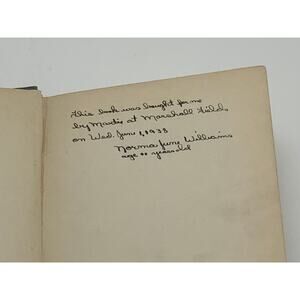 This book was bought for me
by Martis at Marshall Fields
on Wed. June 1, 1938
Norma June Williams
age years old